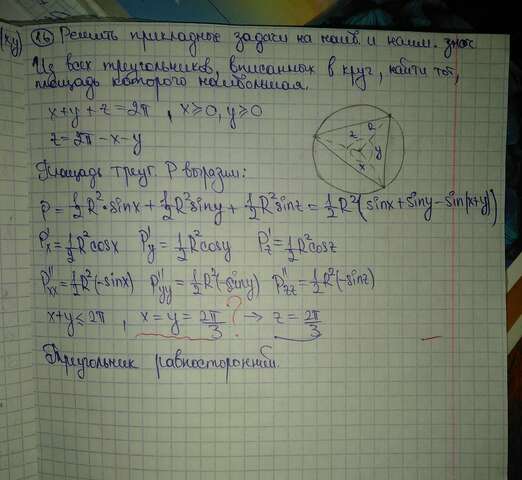 (xy) 16 Решить прикладные задачи на наиб. и наим. знач
Из всех треугольников, вписанных в круг, найти тот,
площадь которого наибольшая.
x+y+z=2π , x≥0, y≥0
z=2π-x-y
z R y x
Площадь треуг. P выразим:
P=½R²·sinx+½R²siny+½R²sinz=½R²(sinx+siny-sin(x+y))
P'x=½R²cosx P'y=½R²cosy P'z=½R²cosz
P''xx=½R²(-sinx) P''yy=½R²(-siny) P''zz=½R²(-sinz)
x+y≤2π , x=y=2π/3 ? → z=2π/3
Треугольник равносторонний.